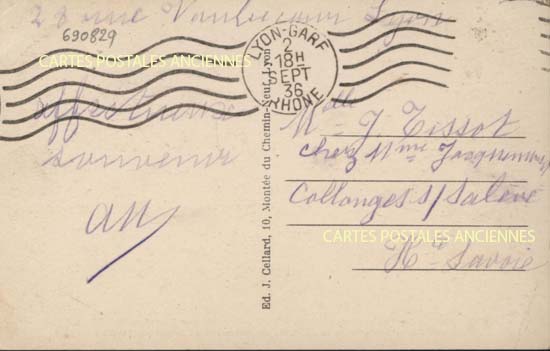 28 rue Vaubecour Lyon
690829
CARTES POSTALES ANCIENNES
affectueux
souvenir
LYON-GARE
2
18H
SEPT
36
RHONE
Ed. J. Cellard, 10, Montée du Chemin-Neuf, Lyon
Melle J. Tissot
chez Mme
Collonges s/ Salève
CARTES POSTALES ANCIENNES
Hte Savoie